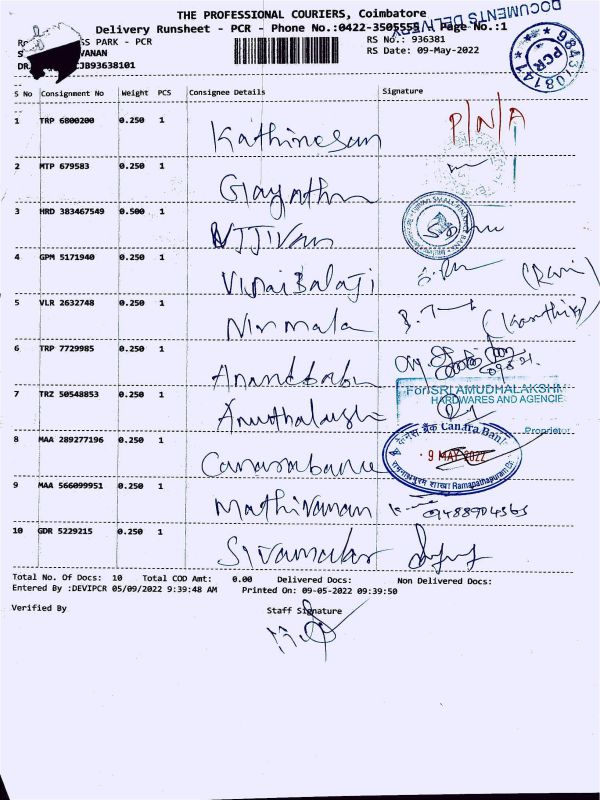 THE PROFESSIONAL COURIERS, Coimbatore
DOCUMENTS DELIVERY
Delivery Runsheet - PCR - Phone No.:0422-3505555 / Page No.:1
SS PARK - PCR
RS No.: 936381
VANAN
RS Date: 09-May-2022
CJB93638101
PCR
9843708141
S No Consignment No Weight PCS Consignee Details Signature
1 TRP 6800200 0.250 1 Kathiresan P/N/A
2 MTP 679583 0.250 1 Gayathri
3 HRD 383467549 0.500 1
4 GPM 5171940 0.250 1 Vimai Balaji (Ravi)
5 VLR 2632748 0.250 1 Nirmala (Karthik)
6 TRP 7729985 0.250 1 Anandbabu
7 TRZ 50548853 0.250 1
For SRI AMUDHALAKSHMI
HARDWARES AND AGENCIE
Proprietor
8 MAA 289277196 0.250 1 Canarabank
केनरा बैंक Canara Bank
9 MAY 2022
Ramanathapuram Br.
9 MAA 566099951 0.250 1 Mathivanan 9488904565
10 GDR 5229215 0.250 1 Sivamalar
Total No. Of Docs: 10 Total COD Amt: 0.00 Delivered Docs: Non Delivered Docs:
Entered By :DEVIPCR 05/09/2022 9:39:48 AM Printed On: 09-05-2022 09:39:50
Verified By Staff Signature